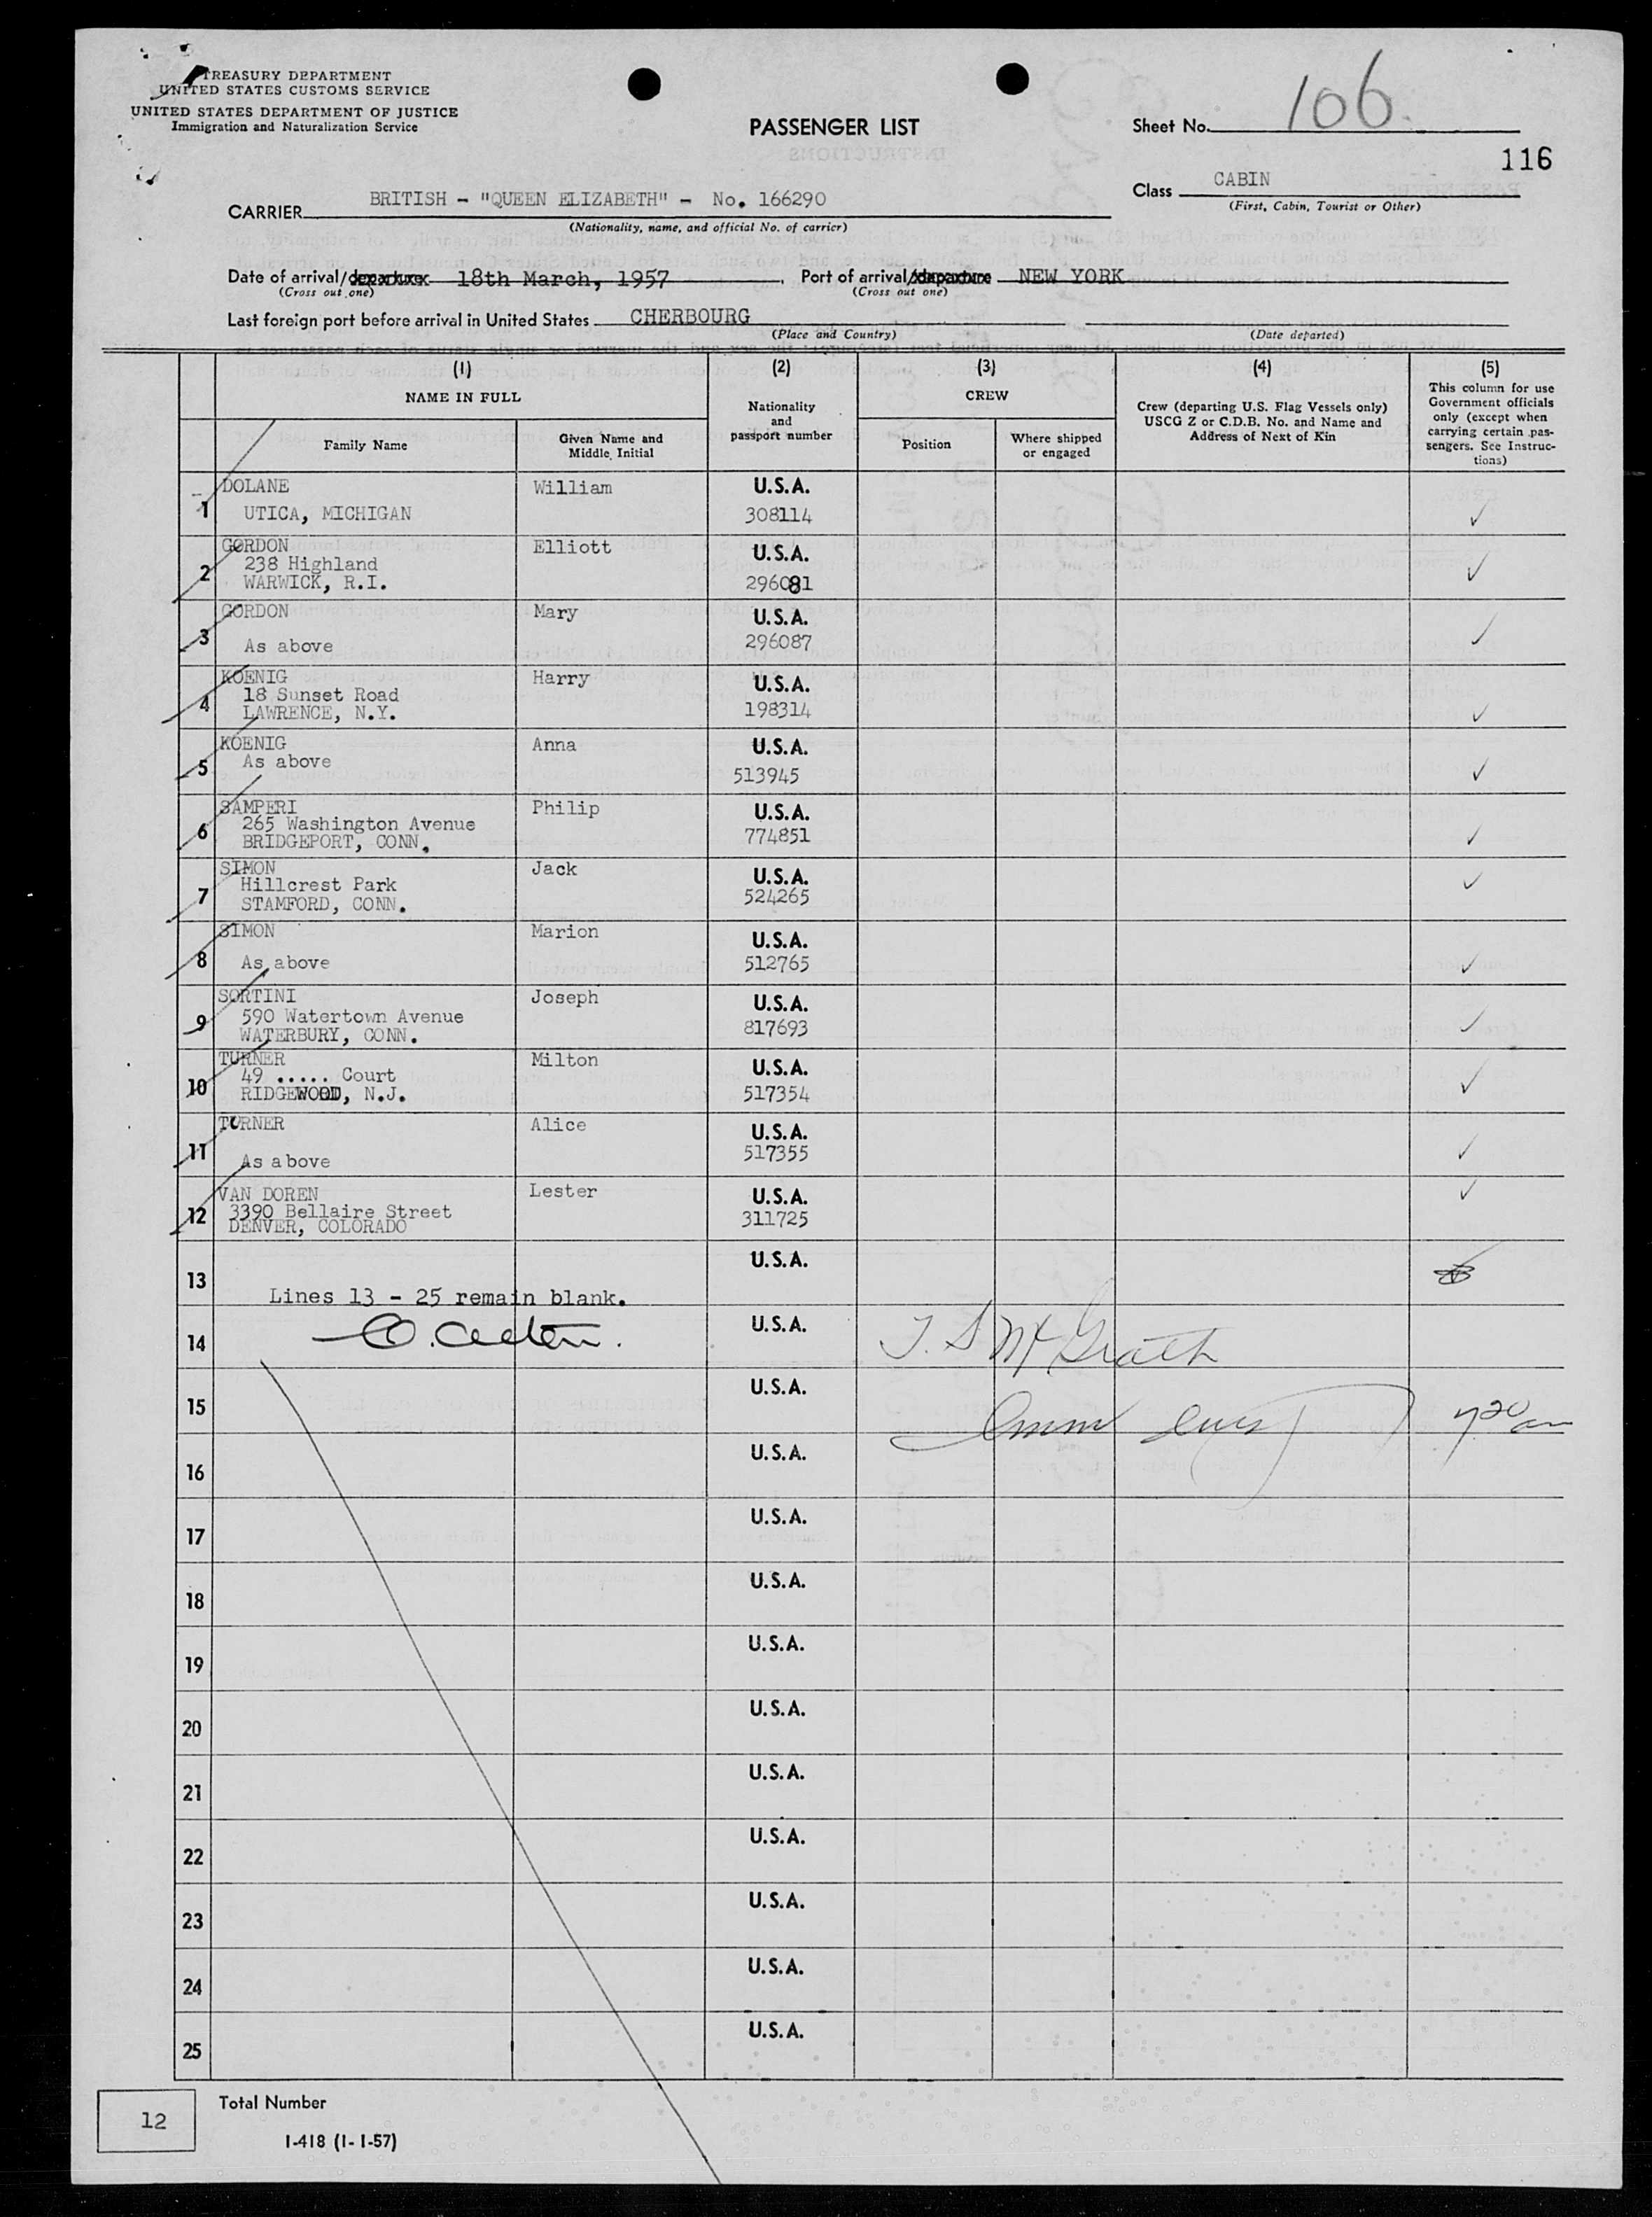 TREASURY DEPARTMENT
UNITED STATES CUSTOMS SERVICE
UNITED STATES DEPARTMENT OF JUSTICE
Immigration and Naturalization Service
PASSENGER LIST
Sheet No. 106.
116
CARRIER BRITISH - "QUEEN ELIZABETH" - No. 166290
(Nationality, name, and official No. of carrier)
Class CABIN
(First, Cabin, Tourist or Other)
Date of arrival/departure 18th March, 1957
(Cross out one)
Port of arrival/departure NEW YORK
(Cross out one)
Last foreign port before arrival in United States CHERBOURG
(Place and Country)
(Date departed)
(1)
NAME IN FULL
Family Name
Given Name and
Middle Initial
(2)
Nationality
and
passport number
(3)
CREW
Position
Where shipped
or engaged
(4)
Crew (departing U.S. Flag Vessels only)
USCG Z or C.D.B. No. and Name and
Address of Next of Kin
(5)
This column for use
Government officials
only (except when
carrying certain pas-
sengers. See Instruc-
tions)
1 DOLANE William U.S.A.
UTICA, MICHIGAN 308114
2 GORDON Elliott U.S.A.
238 Highland
WARWICK, R.I. 296081
3 GORDON Mary U.S.A.
As above 296087
4 KOENIG Harry U.S.A.
18 Sunset Road
LAWRENCE, N.Y. 198314
5 KOENIG Anna U.S.A.
As above 513945
6 SAMPERI Philip U.S.A.
265 Washington Avenue
BRIDGEPORT, CONN. 774851
7 SIMON Jack U.S.A.
Hillcrest Park
STAMFORD, CONN. 524265
8 SIMON Marion U.S.A.
As above 512765
9 SORTINI Joseph U.S.A.
590 Watertown Avenue
WATERBURY, CONN. 817693
10 TURNER Milton U.S.A.
49 ..... Court
RIDGEWOOD, N.J. 517354
11 TURNER Alice U.S.A.
As above 517355
12 VAN DOREN Lester U.S.A.
3390 Bellaire Street
DENVER, COLORADO 311725
13 U.S.A.
Lines 13 - 25 remain blank.
14 U.S.A. T. S McGrath
15 U.S.A. Imm 7 20 am
16 U.S.A.
17 U.S.A.
18 U.S.A.
19 U.S.A.
20 U.S.A.
21 U.S.A.
22 U.S.A.
23 U.S.A.
24 U.S.A.
25 U.S.A.
12 Total Number
I-418 (1-1-57)